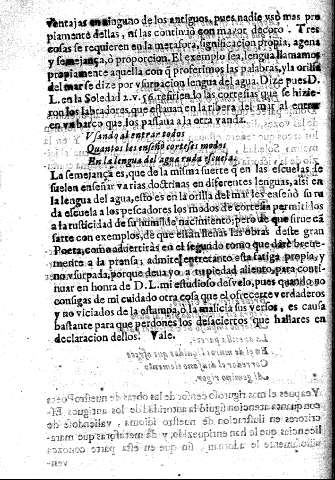 ventajas en ninguno de los antiguos, pues nadie vsò mas pro
piamente dellas, ni las continuò con mayor decoro. Tres
cosas se requieren en la metafora, significacion propia, agena
y semejança, ò proporcion. El exemplo sea, lengua llamamos
propiamente aquella con q̃ proferimos las palabras, y la orilla
del mar se dize por vsurpacion lengua del agua. Dize pues D.
L. en la Soledad 2. v. 56. refiriendo las cortesias que se hizie-
ron los labradores, que estauan en la ribera del mar al entrar
en vn barco que los passaua a la otra vanda.
Vsando al entrar todos
Quantos les enseñò corteses modos
En la lengua del agua ruda escuela.
La semejança es, que de la misma suerte q̃ en las escuelas se
suelen enseñar varias doctrinas en diferentes lenguas, assi en
la lengua del agua, esto es en la orilla del mar les enseñò su ru
da escuela a los pescadores los modos de cortesia permitidos
a la rusticidad de su humilde nacimiento; pero de que sirue cã
sarte con exemplos, de que estàn llenas las obras deste gran
Poeta, como aduertiràs en el segundo tomo que darè breue-
mente a la prensa; admite entretanto esta fatiga propia, y
no vsurpada, porque deua yo a tu piedad aliento, para conti-
nuar en honra de D. L. mi estudioso desvelo, pues quando no
consigas de mi cuidado otra cosa que el ofrecerte verdaderos
y no viciados de la estampa, ò la malicia sus versos, es causa
bastante para que perdones los desaciertos que hallares en
declaracion dellos. Vale.